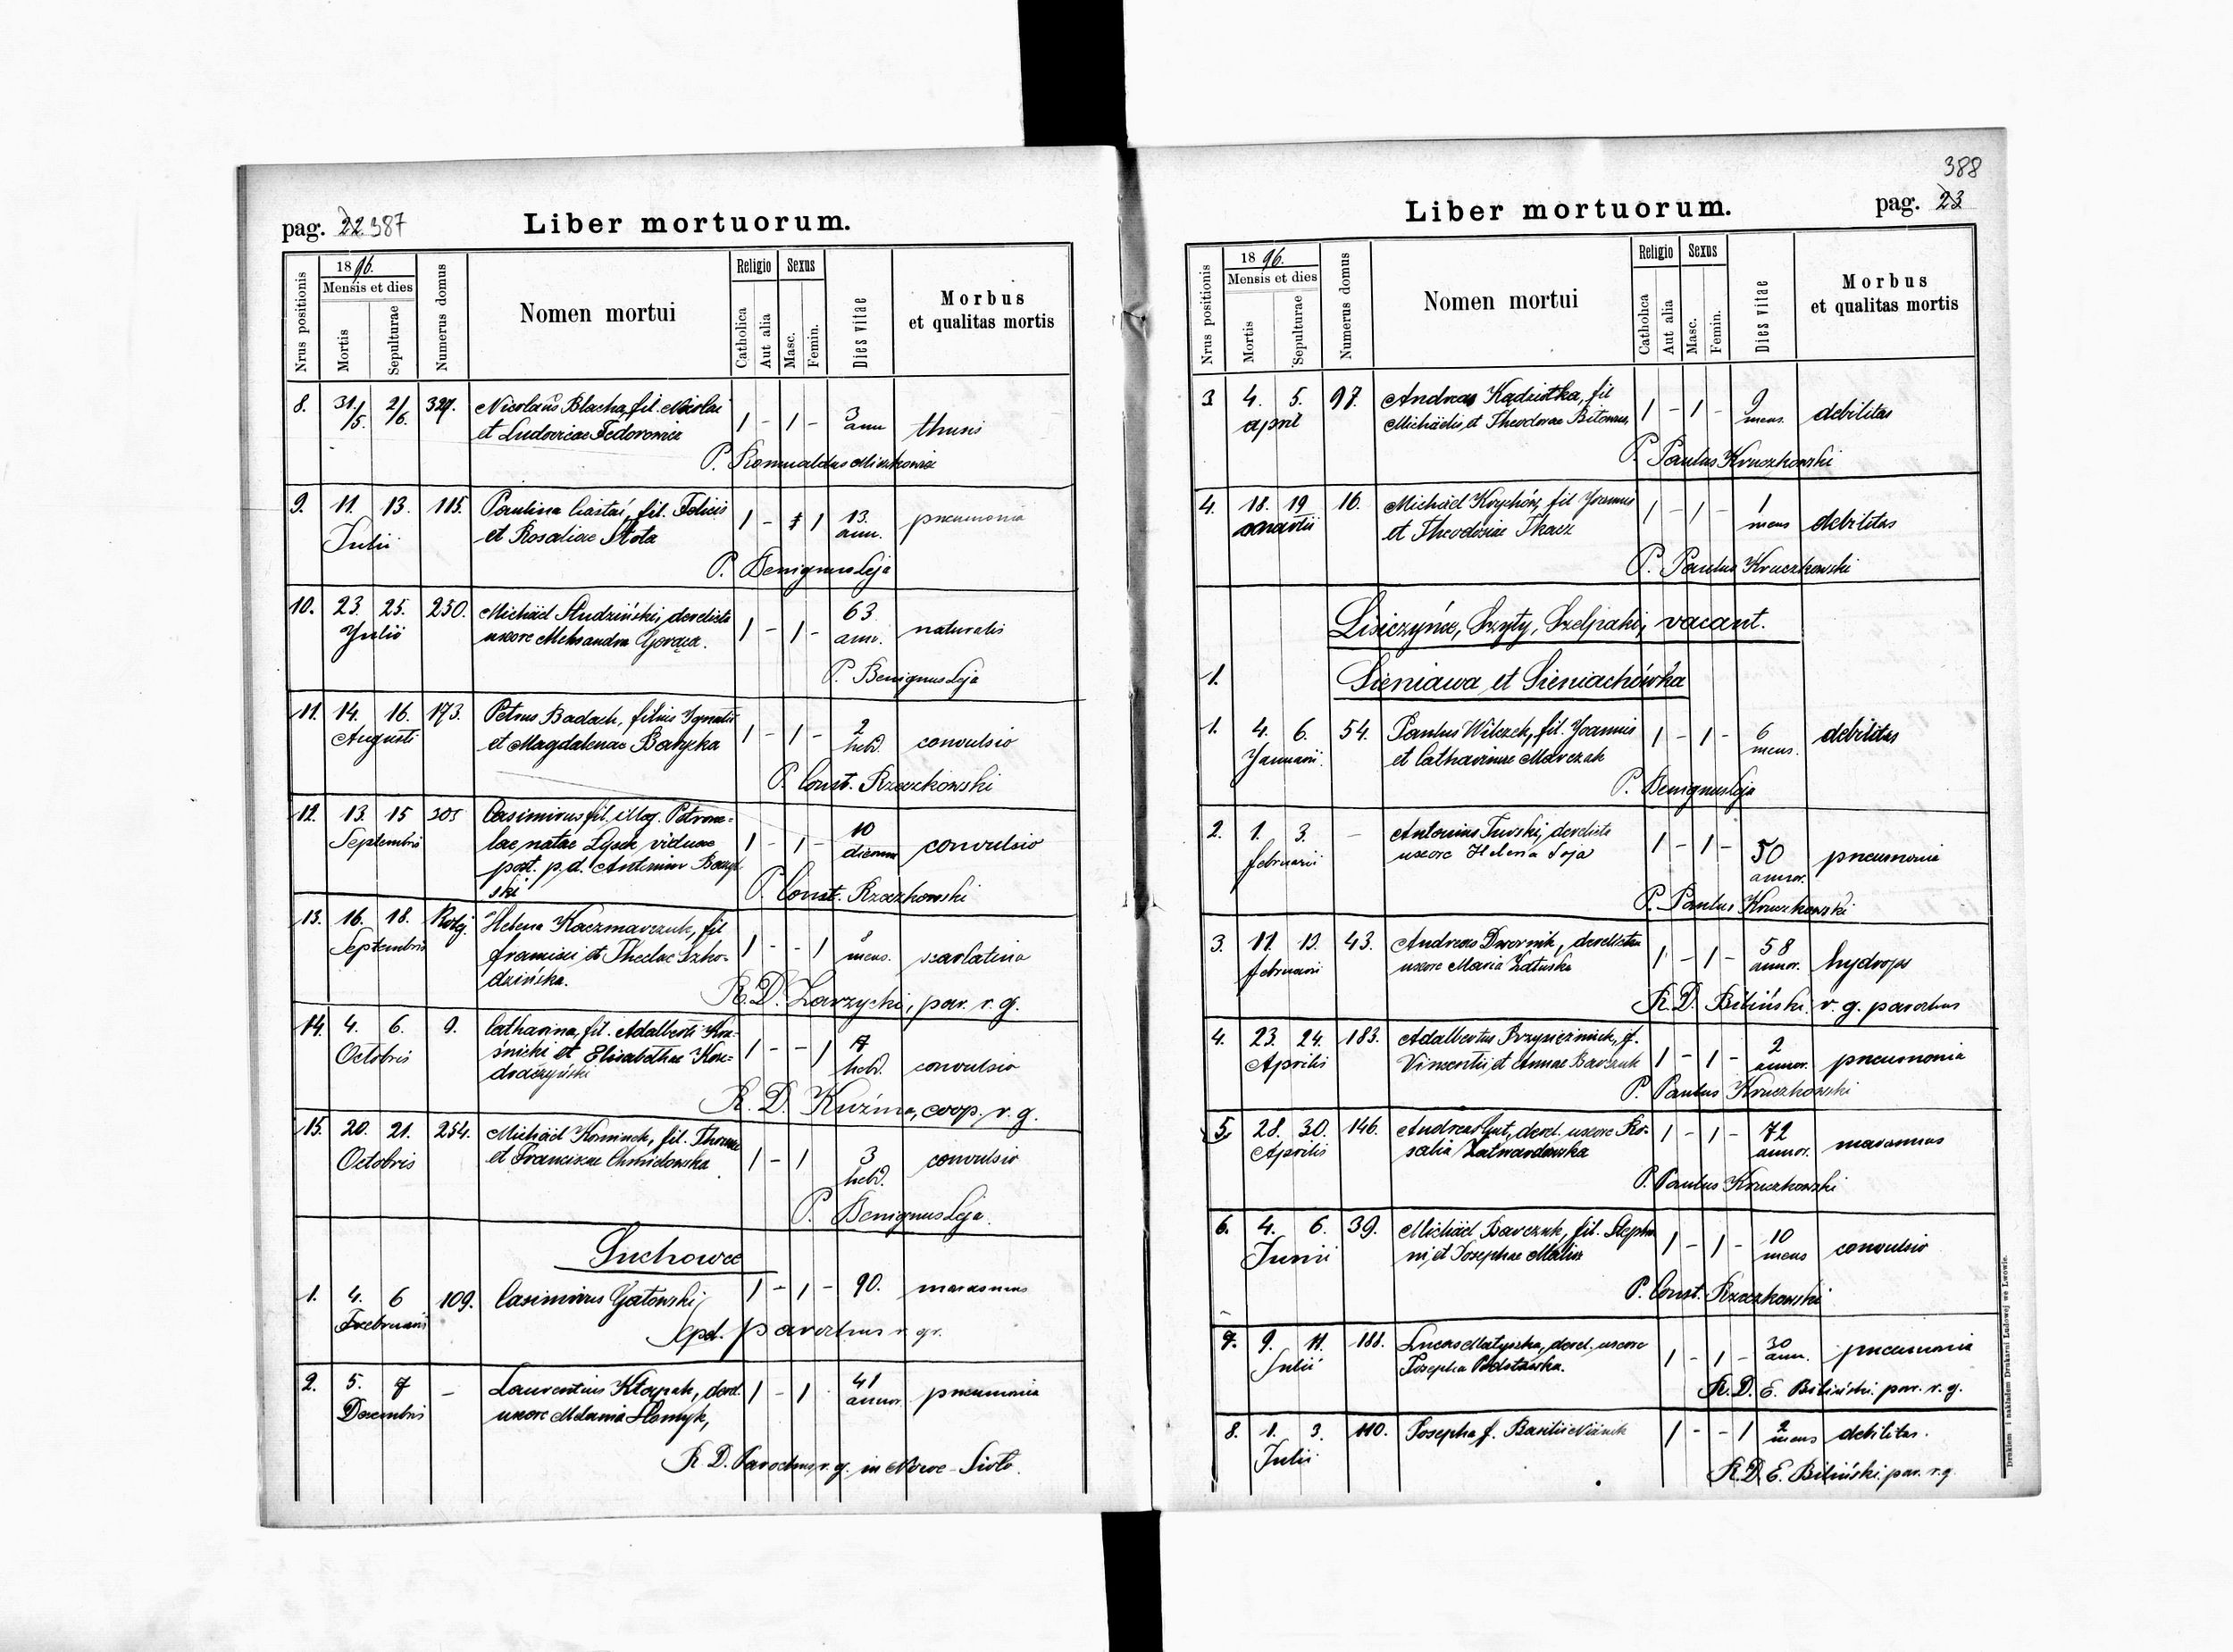 pag. 22 387
Liber mortuorum.
Nrus positionis
1896.
Mensis et dies
Mortis
Sepulturae
Numerus domus
Nomen mortui
Religio
Catholica
Aut alia
Sexus
Masc.
Femin.
Dies vitae
Morbus
et qualitas mortis
8. 31/5. 2/6. 327. Nicolaus Blacha, fil. Nicolai 1 - 1 - 3
et Ludovicae Fedorowicz ann thusis
P. Romualdus
9. 11. 13. 115. Paulina fil. Felicis 1 - 1 13. pneumonia
Julii et Rosaliae ann.
P. Benignus Leja
10. 23. 25. 250. Michäel Studziński, derelicta 1 - 1 - 63 naturalis
Julii uxore Aleksandra Gorąca. ann.
P. Benignus Leja
11. 14. 16. 173. Petrus Badach, filius Ignatii 1 - 1 - 2 convulsio
Augusti et Magdalenae hebd.
P. Const. Rzeczkowski
12. 13. 15 305 Casimirus fil. illeg. Petrone- 1 - 1 - 10 convulsio
Septembris lae natae viduae dierum
post. p. d. Antonium
ski P. Const. Rzeczkowski
13. 16. 18. Helena Kaczmarczuk, fil 1 - - 1 mens. scarlatina
Septembris Francisci et Theclae Szko-
dzińska.
R. D. Zarzycki, par. r. g.
14. 4. 6. 9. Catharina, fil. Adalberti 1 - - 1 convulsio
Octobris śnicki et Elisabethae hebd.
R. D. Kuźma, coop. r. g.
15. 20. 21. 254. Michäel fil. Thomae 1 - 1 3 convulsio
Octobris et Franciscae Chmielowska hebd.
P. Benignus Leja.
Suchowce
1. 4. 6 109. Casimirus Gatowski 1 - 1 - 90. marasmus
Februarii Sepel. parochus r. gr.
2. 5. 7 - Laurentius derel. 1 - 1 41 pneumonia
Decembris uxore Melania annor.
R. D. Parochus r. g. in Nowe-Sioło.
388
Liber mortuorum.
pag. 23
Nrus positionis
1896.
Mensis et dies
Mortis
Sepulturae
Numerus domus
Nomen mortui
Religio
Catholica
Aut alia
Sexus
Masc.
Femin.
Dies vitae
Morbus
et qualitas mortis
3 4. 5. 97. Andreas fil 1 - 1 - 9 debilitas
april Michäelis et Theodorae mens.
P. Paulus Kruczkowski
4. 18. 19 16. Michäel fil Joannis 1 - 1 - 1 debilitas
martii et Theodosiae Tkacz mens
P. Paulus Kruczkowski
Lisiczyńce, Szyły, Szelpaki, vacant.
1. Sieniawa et Sieniachówka
1. 4. 6. 54. Paulus Wilczek, fil. Joannis 1 - 1 - 6 debilitas
Januarii. et Catharinae Marczak mens.
P. Benignus Leja
2. 1. 3. - Antonius Turski, derelicta 1 - 1 - 50 pneumonia
februarii uxore Helena Soja annor.
P. Paulus Kruczkowski
3. 11. 13. 43. Andreas Dwornik, derelicta 1 - 1 - 58 hydrops
februarii uxore Maria Załuska annor.
R. D. Biliński r. g. parochus
4. 23. 24. 183. Adalbertus f. 1 - 1 - 2 pneumonia
Aprilis Vincentii et Annae Barczuk annor.
P. Paulus Kruczkowski
5. 28. 30. 146. Andreas Gut, derel. uxore Ro- 1 - 1 - 72 marasmus
Aprilis salia annor.
P. Paulus Kruczkowski
6. 4. 6. 39. Michäel Barczuk, fil. Stepha 1 - 1 - 10 convulsio
Junii ni et Josephae mens
P. Const. Rzeczkowski
7. 9. 11. 188. Lucas Matyszka, derel. uxore 1 - 1 - 30 pneumonia
Julii Josepha ann.
R. D. E. Biliński par. r. g.
8. 1. 3. 110. Josepha f. Basilii 1 - - 1 2 debilitas.
Julii mens
R. D. E. Biliński par. r. g.
Drukiem i nakładem Drukarni Ludowej we Lwowie.